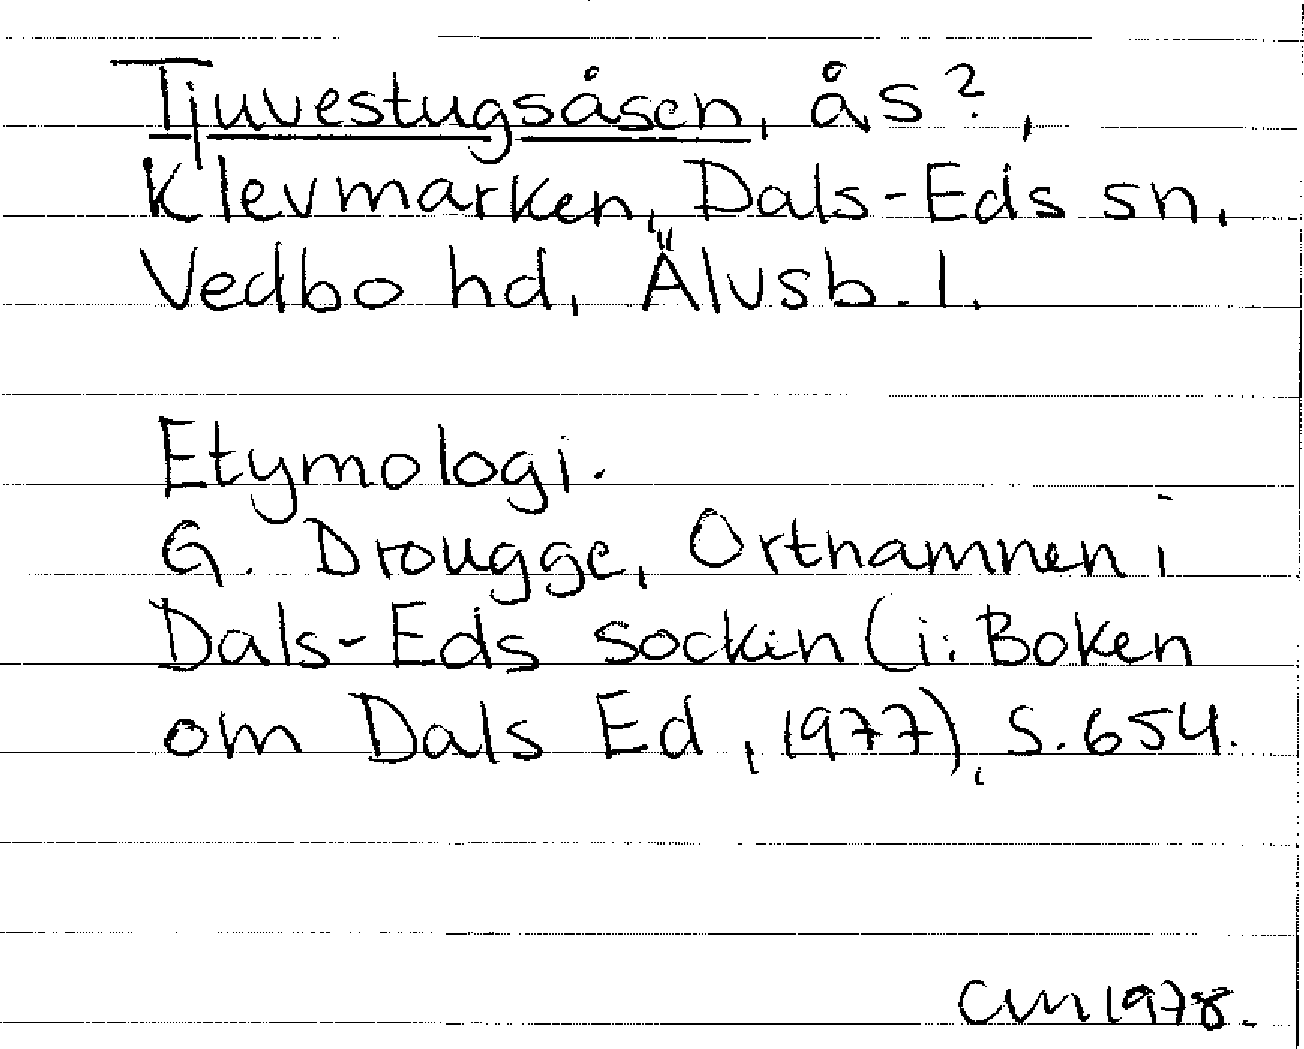 Tjuvestugsåsen, ås?,
Klevmarken, Dals-Eds sn,
Vedbo hd, Älvsb. l.
Etymologi.
G. Drougge, Ortnamnen i
Dals-Eds sockin (i: Boken
om Dals Ed, 1977), s. 654.
CM 1978.